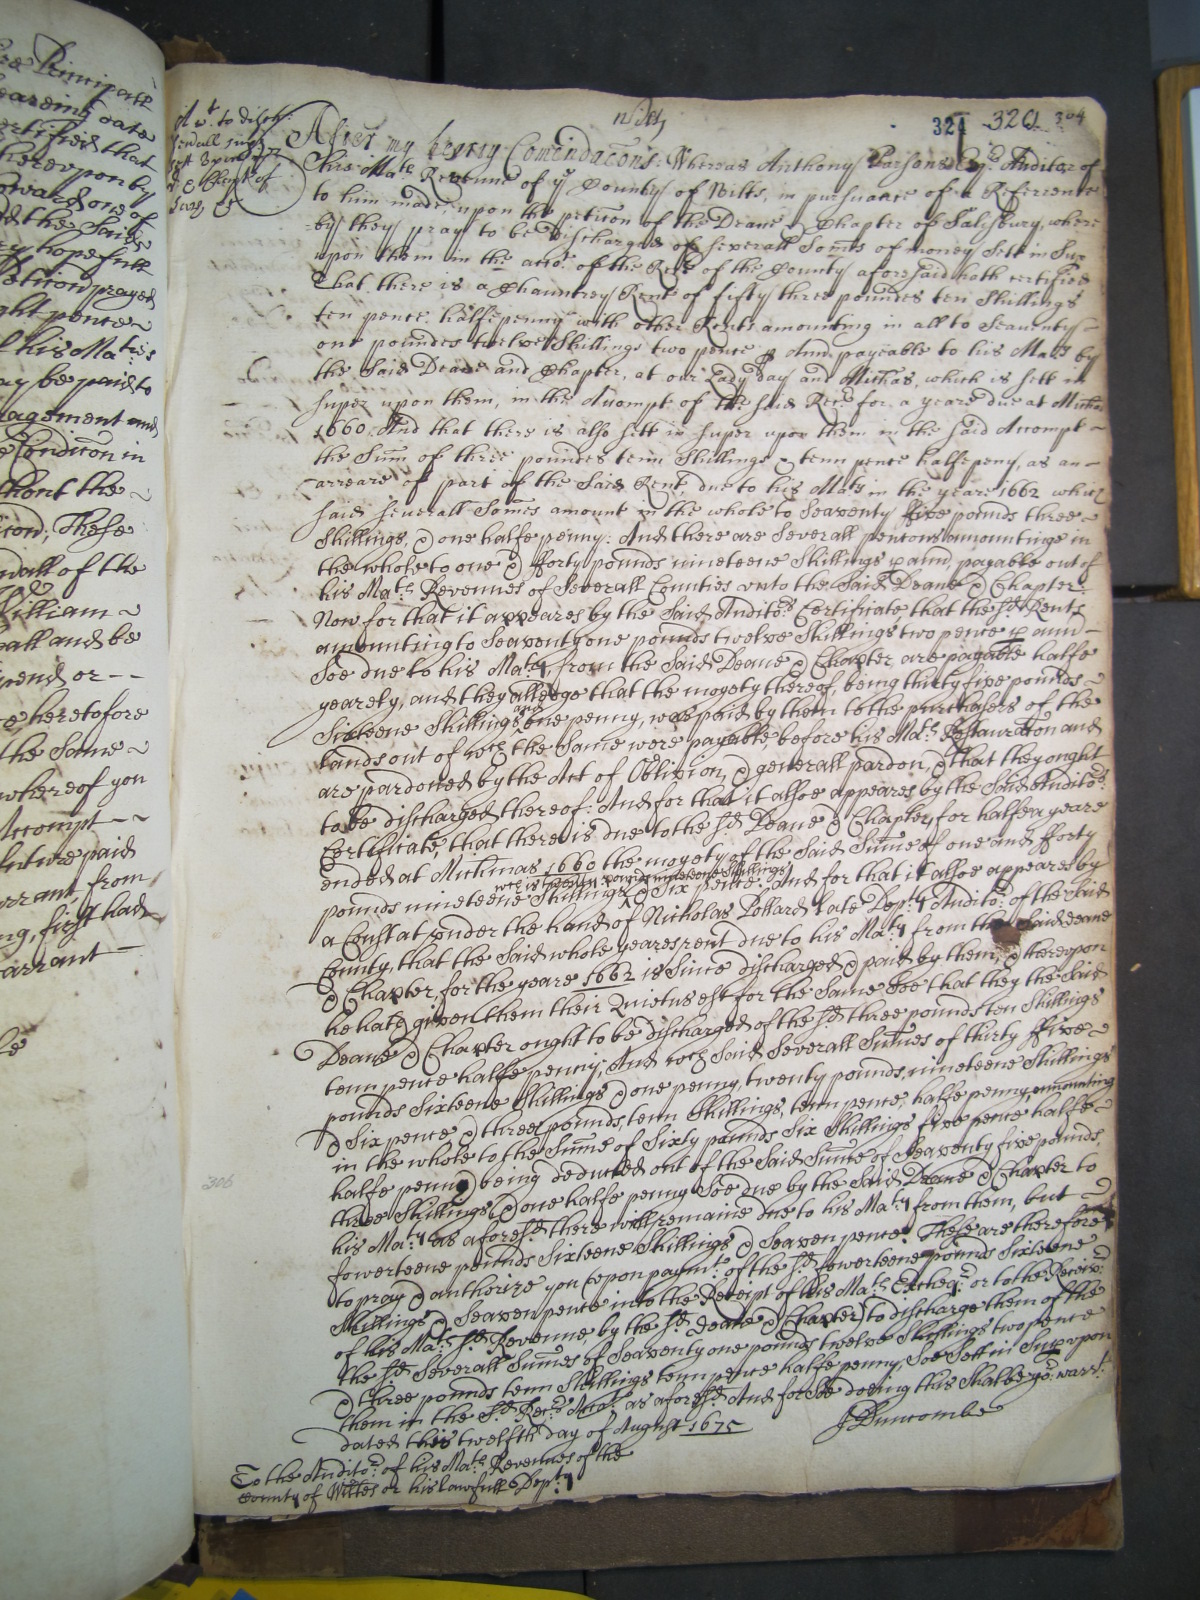 Principall
bearing date
certified that
thereupon by
the said
hopefull
Peticon prayed
ght pence ~
his Ma.ties
ay be paid to
agement and
Condicon in
thout the ~
icon; These
ndall of the
William ~
all and be
pend or - -
e, heretofore
the same ~
whereof you
Accompt - ~
future paid
arrant, from
ng, first had
arrant —
324 320 304
A wt. to disch:
After my hearty Comendacons: Whereas Anthony Parsons Esq. Auditor of
his Ma.ts Revenue of ye County of Wilts, in pursuance of a Referrence
to him made, upon the peticon of the Deane & Chapter of Salisbury, where
by they pray to be discharged of severall Somes of money sett in Sup
upon them in the acco.t of the Rec.r of the County aforesaid hath certified
That there is a Chauntry Rent of fifty three poundes ten Shillings
ten pence halfe penny with other Rents amounting in all to Seaventy ~
one poundes twelve Shillings two pence p Ann. payeable to his Ma.ts by
the said Deane and Chapter, at our Lady day and Michas, which is sett in
super upon them, in the Accompt of the said Rec.r for a yeare due at Michas
1660. And that there is also sett in super upon them in the said Accompt ~
the Sum of three poundes tenn Shillings & tenn pence halfe peny, as an ~
arreare of part of the said Rent, due to his Ma.ts in the yeare 1662 which
said severall Somes amount in the whole to Seaventy ffive pounds three ~
Shillings, & one halfe penny: And there are Severall pencons amountinge in
the whole to one & fforty pounds nineteene Shillings p ann, payable out of
his Ma.ts Revenues of Severall Counties unto the said Deane & Chapter.
Now for that it appeares by the said Audito.rs Certificate, that the s.d Rents
amounting to Seaventy one pounds twelve Shillings, two pence p ann —
Soe due to his Ma.ty from the said Deane & Chapter, are payable halfe
yearely, and they alledge that the moyety thereof, being thirty five pounds ~
Sixteene Shillings and one penny, was paid by them to the purchasers of the
lands out of wch the same were payable, before his Ma.ts Restauration and
are pardoned by the Act of Oblivion, & generall pardon, & that they ought
to be discharged thereof: And for that it alsoe appeares by the said Audito.rs
Certificate, that there is due to the s.d Deane & Chapter, for halfe a yeare
ended at Michmas 1660 the moyety of the said Sume of one and fforty
wch is twenty pounds nineteene Shillings
pounds nineteene Shillings & Six pence: And for that it alsoe appeares by
a Constat under the hand of Nicholas Pollard late Dep.ty Audito.r of the said
County, that the said whole yeares rent due to his Ma.ty from the said Deane
& Chapter, for the yeare 1662 is since discharged & paid by them, & thereupon
he hath given them their Quietus est for the same Soe that they the said
Deane & Chapter ought to be discharged of the s.d three pounds ten Shillings
tenn pence halfe penny; And wch said severall Sumes of thirty ffive ~
pounds Sixteene Shillings & one penny, twenty pounds, nineteene Shillings
& Six pence & three pounds, tenn Shillings, tenn pence, halfe penny, amounting
in the whole to the Sume of Sixty pounds Six Shillings five pence halfe ~
halfe penny being deducted out of the said Sume of Seaventy five pounds,
three Shillings & one halfe penny Soe due by the said Deane & Chapter to
his Ma.ty as afores.d there will remaine due to his Ma.ty from them, but
fowerteene pounds Sixteene Shillings & Seaven pence. These are therefore
to pray & authorize you (upon paym.t of the s.d fowerteene pounds Sixteene
Shillings & Seaven pence into the Receipt of his Ma.ts Excheq.r or to the Receiv.r
of his Ma.ts s.d Revenue by the s.d Deane & Chapter) to discharge them of the
the s.d Severall Sumes of Seaventy one pounds twelve Shillings two pence
& three pounds tenn Shillings tenn pence halfe penny, Soe Sett in Sup upon
them in the s.d Rec.rs Acco.t as afores.d And for Soe doeing this Shalbe yo.r warr.t
dated this twelfth day of August 1675
J Duncombe
To the Audito.r of his Ma.ts Revenues of the
County of Wiltes or his lawfull Dep.ty
306